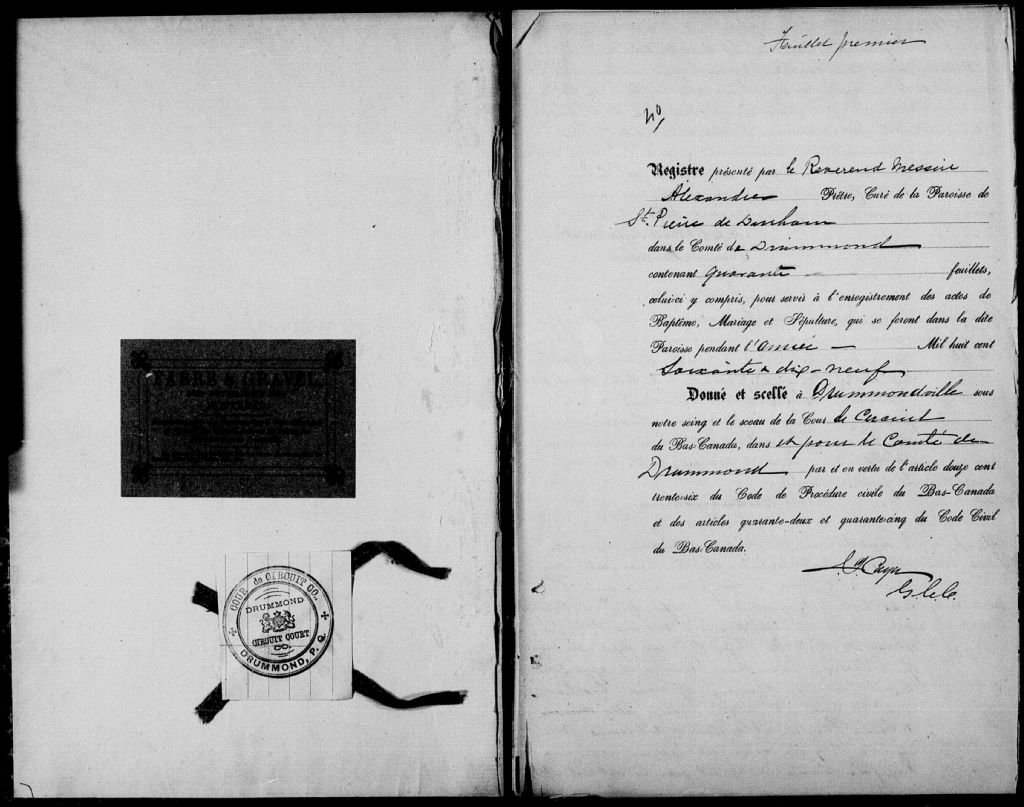 FABRE & GRAVEL
COUR de CIRCUIT CO.
DRUMMOND
CIRCUIT COURT
CO
DRUMMOND, P. Q.
Feuillet premier
40
Registre présenté par le Reverend Messire
Alexandre Prêtre, Curé de la Paroisse de
St. Pierre de Durham
dans le Comté de Drummond
contenant quarante feuillets,
celui-ci y compris, pour servir à l'enregistrement des actes de
Baptême, Mariage et Sépulture, qui se feront dans la dite
Paroisse pendant l'année Mil huit cent
Soixante & dix-neuf
Donné et scellé à Drummondville sous
notre seing et le sceau de la Cour de Circuit
du Bas-Canada, dans et pour le Comté de
Drummond par et en vertu de l'article douze cent
trente-six du Code de Procédure civile du Bas-Canada
et des articles quarante-deux et quarante-cinq du Code Civil
du Bas-Canada.